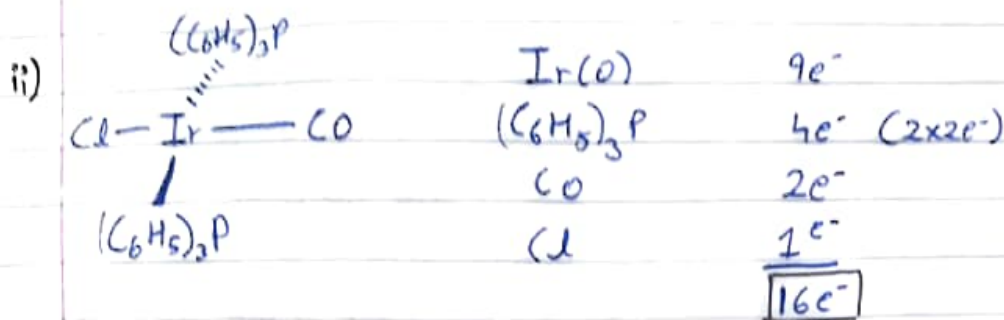 ii)
((C6H5)3P
Cl—Ir—CO
(C6H5)3P
Ir(0) 9e-
(C6H5)3P 4e- (2x2e-)
CO 2e-
Cl 1e-
16e-